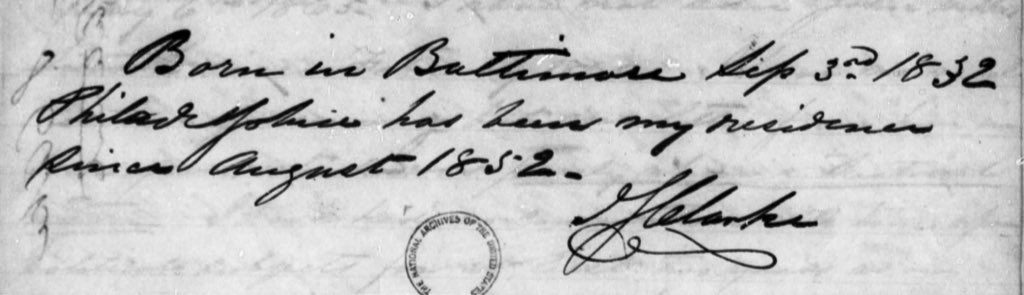 Born in Baltimore Sep 3rd 1832
Philadelphia has been my residence
since August 1852.
J S Clarke
THE NATIONAL ARCHIVES OF THE UNITED STATES